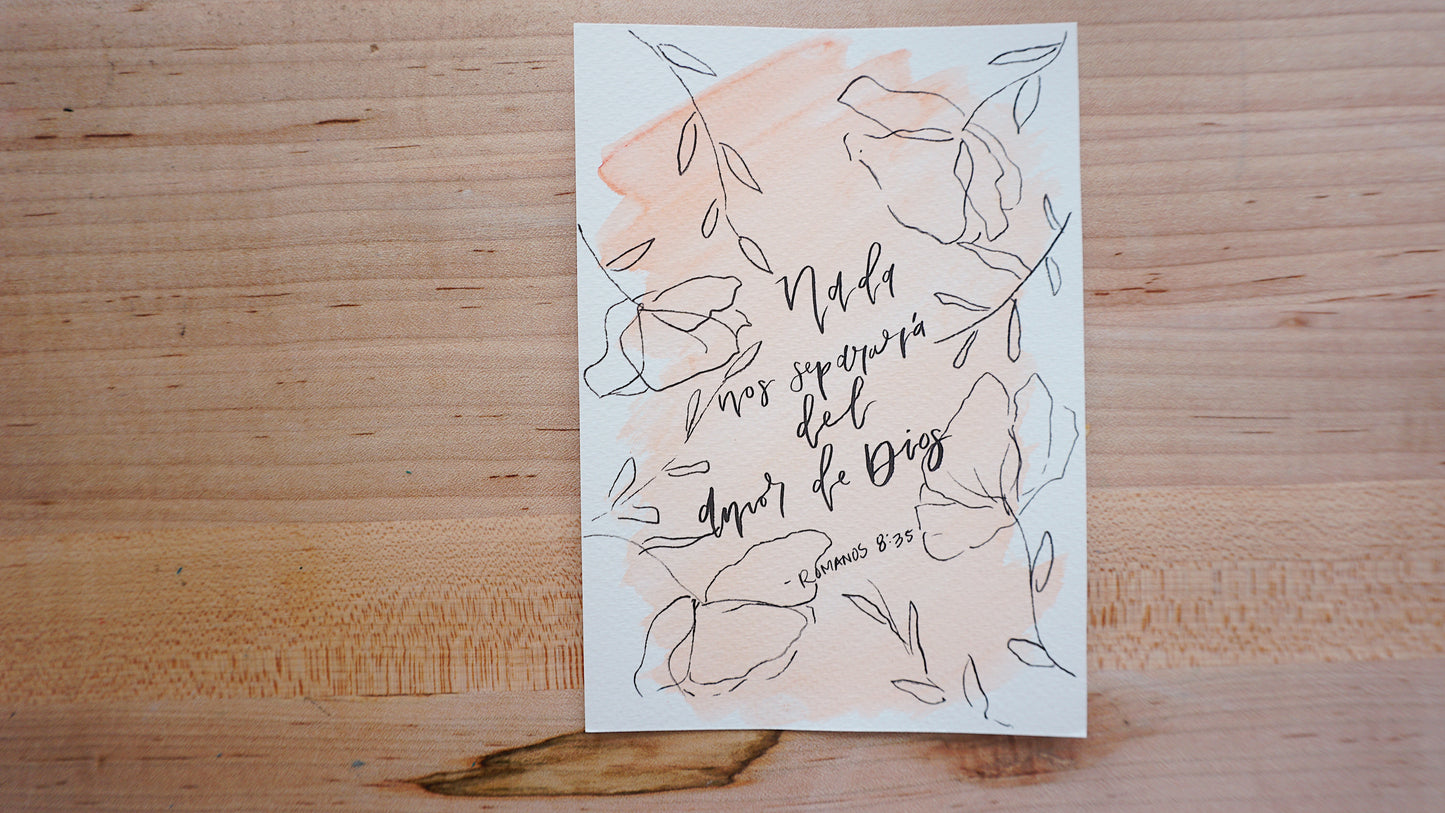 Nada
nos separará
del
amor de Dios
- ROMANOS 8:35